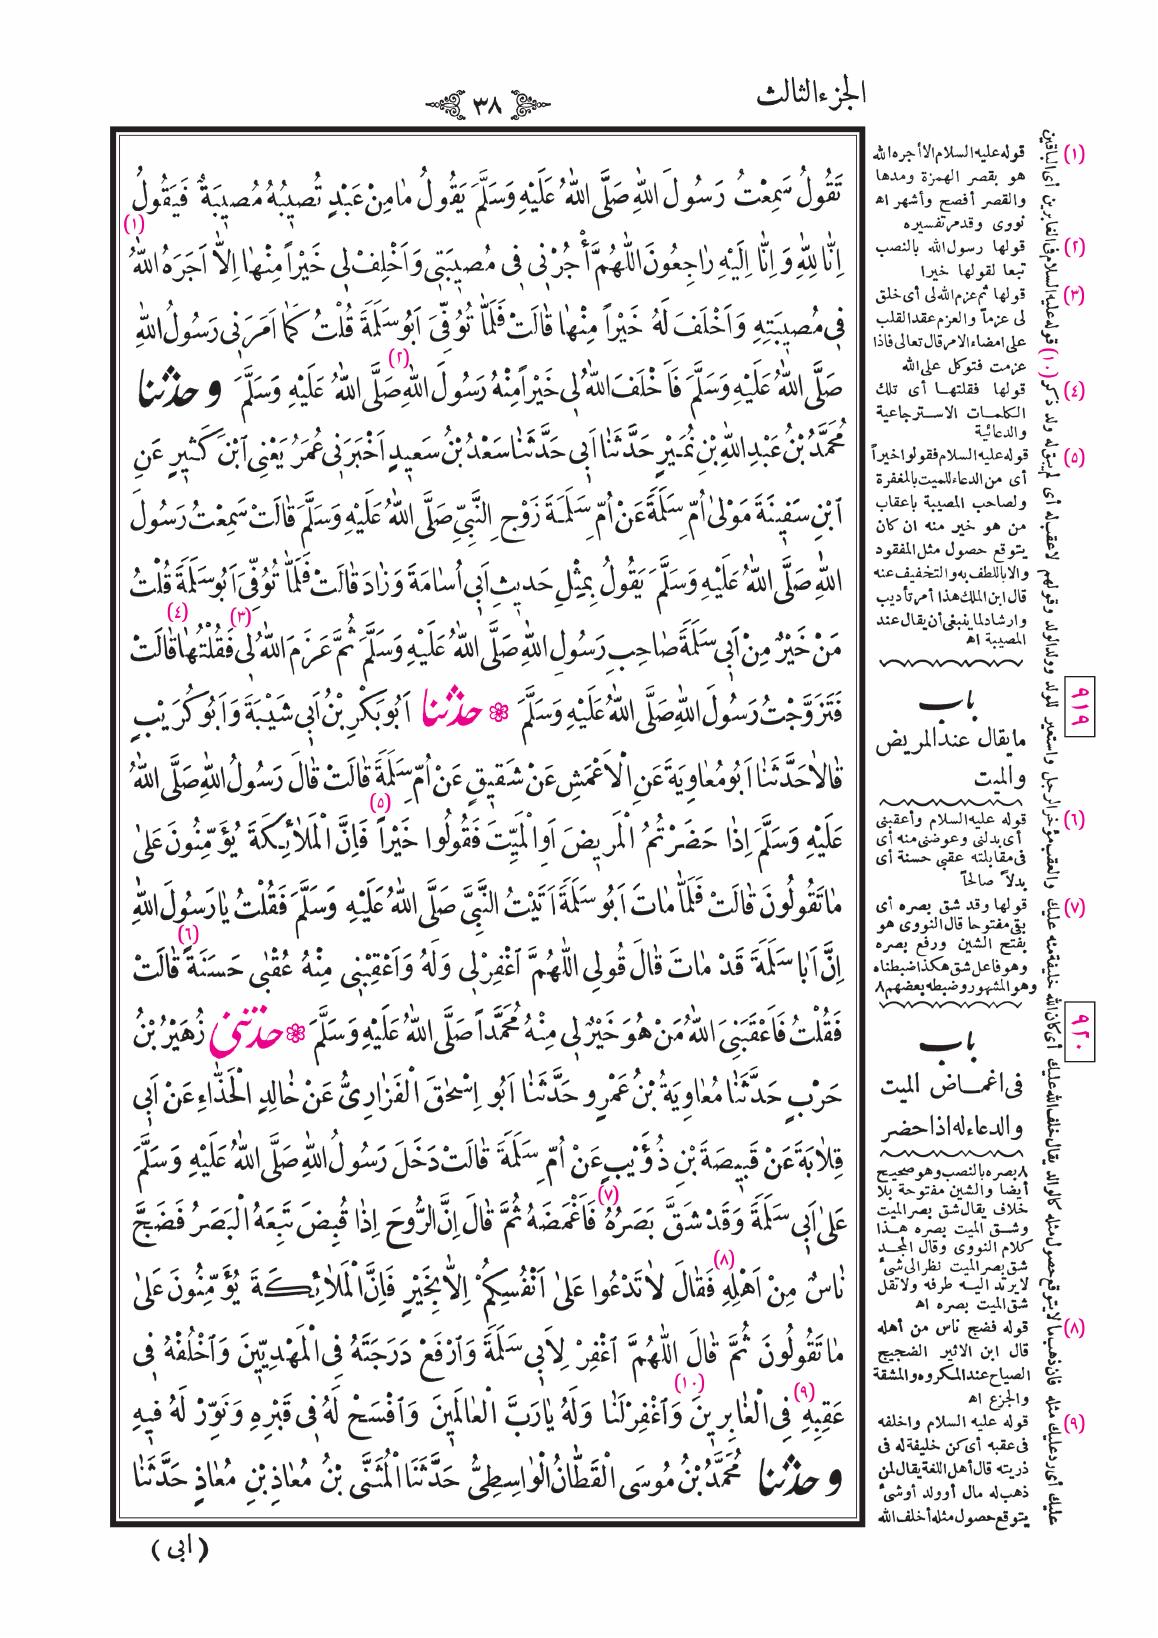 الجزء الثالث
٣٨
تَقُولُ سَمِعْتُ رَسُولَ اللّٰهِ صَلَّى اللّٰهُ عَلَيْهِ وَسَلَّمَ يَقُولُ مٰا مِنْ عَبْدٍ تُصِيبُهُ مُصِيبَةٌ فَيَقُولُ
اِنّٰا لِلّٰهِ وَاِنّٰا اِلَيْهِ رٰاجِعُونَ اَللّٰهُمَّ أْجُرْنِى فِى مُصِيبَتِى وَاَخْلِفْ لِى خَيْراً مِنْهٰا اِلاّٰ اَجَرَهُ اللّٰهُ (١)
فِى مُصِيبَتِهِ وَاَخْلَفَ لَهُ خَيْراً مِنْهٰا قٰالَتْ فَلَمّٰا تُوُفِّىَ اَبُو سَلَمَةَ قُلْتُ كَمٰا اَمَرَنِى رَسُولُ اللّٰهِ
صَلَّى اللّٰهُ عَلَيْهِ وَسَلَّمَ فَاَخْلَفَ اللّٰهُ لِى خَيْراً مِنْهُ رَسُولَ اللّٰهِ (٢) صَلَّى اللّٰهُ عَلَيْهِ وَسَلَّمَ و حدثنا
مُحَمَّدُ بْنُ عَبْدِ اللّٰهِ بْنِ نُمَيْرٍ حَدَّثَنٰا اَبِى حَدَّثَنٰا سَعْدُ بْنُ سَعِيدٍ اَخْبَرَنِى عُمَرُ يَعْنِى ابْنَ كَثِيرٍ عَنِ
ابْنِ سَفِينَةَ مَوْلىٰ اُمِّ سَلَمَةَ عَنْ اُمِّ سَلَمَةَ زَوْجِ النَّبِىِّ صَلَّى اللّٰهُ عَلَيْهِ وَسَلَّمَ قٰالَتْ سَمِعْتُ رَسُولَ
اللّٰهِ صَلَّى اللّٰهُ عَلَيْهِ وَسَلَّمَ يَقُولُ بِمِثْلِ حَديثِ اَبِى اُسٰامَةَ وَزٰادَ قٰالَتْ فَلَمّٰا تُوُفِّىَ اَبُو سَلَمَةَ قُلْتُ
مَنْ خَيْرٌ مِنْ اَبِى سَلَمَةَ صٰاحِبِ رَسُولِ اللّٰهِ صَلَّى اللّٰهُ عَلَيْهِ وَسَلَّمَ ثُمَّ عَزَمَ اللّٰهُ لِى (٣) فَقُلْتُهٰا (٤) قٰالَتْ
فَتَزَوَّجْتُ رَسُولَ اللّٰهِ صَلَّى اللّٰهُ عَلَيْهِ وَسَلَّمَ ❁ حدثنا اَبُو بَكْرِ بْنُ اَبِى شَيْبَةَ وَاَبُو كُرَيْبٍ
قٰالاٰ حَدَّثَنٰا اَبُو مُعٰاوِيَةَ عَنِ الْاَعْمَشِ عَنْ شَقِيقٍ عَنْ اُمِّ سَلَمَةَ قٰالَتْ قٰالَ رَسُولُ اللّٰهِ صَلَّى اللّٰهُ
عَلَيْهِ وَسَلَّمَ اِذٰا حَضَرْتُمُ الْمَريضَ اَوِ الْمَيِّتَ فَقُولُوا خَيْراً (٥) فَاِنَّ الْمَلاٰئِكَةَ يُؤَمِّنُونَ عَلىٰ
مٰا تَقُولُونَ قٰالَتْ فَلَمّٰا مٰاتَ اَبُو سَلَمَةَ اَتَيْتُ النَّبِىَّ صَلَّى اللّٰهُ عَلَيْهِ وَسَلَّمَ فَقُلْتُ يٰا رَسُولَ اللّٰهِ
اِنَّ اَبٰا سَلَمَةَ قَدْ مٰاتَ قٰالَ قُولِى اَللّٰهُمَّ اغْفِرْ لِى وَلَهُ وَاَعْقِبْنِى مِنْهُ عُقْبىٰ حَسَنَةً (٦) قٰالَتْ
فَقُلْتُ فَاَعْقَبَنِىَ اللّٰهُ مَنْ هُوَ خَيْرٌ لِى مِنْهُ مُحَمَّداً صَلَّى اللّٰهُ عَلَيْهِ وَسَلَّمَ ❁ حدثنى زُهَيْرُ بْنُ
حَرْبٍ حَدَّثَنٰا مُعٰاوِيَةُ بْنُ عَمْرٍو حَدَّثَنٰا اَبُو اِسْحٰقَ الْفَزٰارِىُّ عَنْ خٰالِدٍ الْحَذّٰاءِ عَنْ اَبِى
قِلاٰبَةَ عَنْ قَبِيصَةَ بْنِ ذُؤَيْبٍ عَنْ اُمِّ سَلَمَةَ قٰالَتْ دَخَلَ رَسُولُ اللّٰهِ صَلَّى اللّٰهُ عَلَيْهِ وَسَلَّمَ
عَلىٰ اَبِى سَلَمَةَ وَقَدْ شَقَّ بَصَرُهُ (٧) فَاَغْمَضَهُ ثُمَّ قٰالَ اِنَّ الرُّوحَ اِذٰا قُبِضَ تَبِعَهُ الْبَصَرُ فَضَجَّ
نٰاسٌ مِنْ اَهْلِهِ (٨) فَقٰالَ لاٰ تَدْعُوا عَلىٰ اَنْفُسِكُمْ اِلاّٰ بِخَيْرٍ فَاِنَّ الْمَلاٰئِكَةَ يُؤَمِّنُونَ عَلىٰ
مٰا تَقُولُونَ ثُمَّ قٰالَ اَللّٰهُمَّ اغْفِرْ لِاَبِى سَلَمَةَ وَارْفَعْ دَرَجَتَهُ فِى الْمَهْدِيِّينَ وَاخْلُفْهُ فِى
عَقِبِهِ (٩) فِى الْغٰابِرِينَ (١٠) وَاغْفِرْ لَنٰا وَلَهُ يٰا رَبَّ الْعٰالَمِينَ وَافْسَحْ لَهُ فِى قَبْرِهِ وَنَوِّرْ لَهُ فِيهِ
و حدثنا مُحَمَّدُ بْنُ مُوسَى الْقَطّٰانُ الْوٰاسِطِىُّ حَدَّثَنَا الْمُثَنَّى بْنُ مُعٰاذِ بْنِ مُعٰاذٍ حَدَّثَنٰا
( ابى )
(١) قوله عليه السلام الا أجره الله
هو بقصر الهمزة ومدها
والقصر أفصح وأشهر اه
نووى وقد مر تفسيره
(٢) قولها رسول الله بالنصب
تبعا لقولها خيرا
(٣) قولها ثم عزم الله لى أى خلق
لى عزماً والعزم عقد القلب
على امضاء الامر قال تعالى فاذا
عزمت فتوكل على الله
(٤) قولها فقلتهـا أى تلك
الكلمـات الاسـترجاعية
والدعائية
(٥) قوله عليه السلام فقولوا خيراً
أى من الدعاء للميت بالمغفرة
ولصاحب المصيبة باعقاب
من هو خير منه ان كان
يتوقع حصول مثل المفقود
والا باللطف به والتخفيف عنه
قال ابن الملك هذا أمر تأديب
وارشاد لما ينبغى أن يقال عند
المصيبة اه
٩١٩
باب
ما يقال عند المريض
والميت
(٦) قوله عليه السلام وأعقبنى
أى بدلنى وعوضنى منه أى
فى مقابلته عقبى حسنة أى
بدلاً صالحاً
(٧) قولها وقد شق بصره أى
بقى مفتوحا قال النووى هو
بفتح الشين ورفع بصره
وهو فاعل شق هكذا ضبطناه
وهو المشهور وضبطه بعضهم ٨
٩٢٠
باب
فى اغمـاض الميت
والدعاء له اذا حضر
٨ بصره بالنصب وهو صحيح
أيضا والشين مفتوحة بلا
خلاف يقال شق بصر الميت
وشـق الميت بصره هـذا
كلام النووى وقال المجـد
شق بصر الميت نظر الى شىء
لا يرتد اليـه طرفه ولا تقل
شق الميت بصره اه
(٨) قوله فضج ناس من أهله
قال ابن الاثير الضجيج
الصياح عند المكروه والمشقة
والجزع اه
(٩) قوله عليه السلام واخلفه
فى عقبه أى كن خليفة له فى
ذريته قال أهل اللغة يقال لمن
ذهب له مال أو ولد أو شىء
يتوقع حصول مثله أخلف الله
عليك أى رد عليك مثله فان ذهب ما لا يتوقع حصول مثله كالوالد يقال خلف الله عليك أى كان الله خليفة منه عليك والعقب مؤخر الرجل واستعير للولد وولد الولد وقولهم لا عقب له أى لم يبق له ولد ذكر (١٠) قوله عليه السلام فى الغابرين أى الباقين